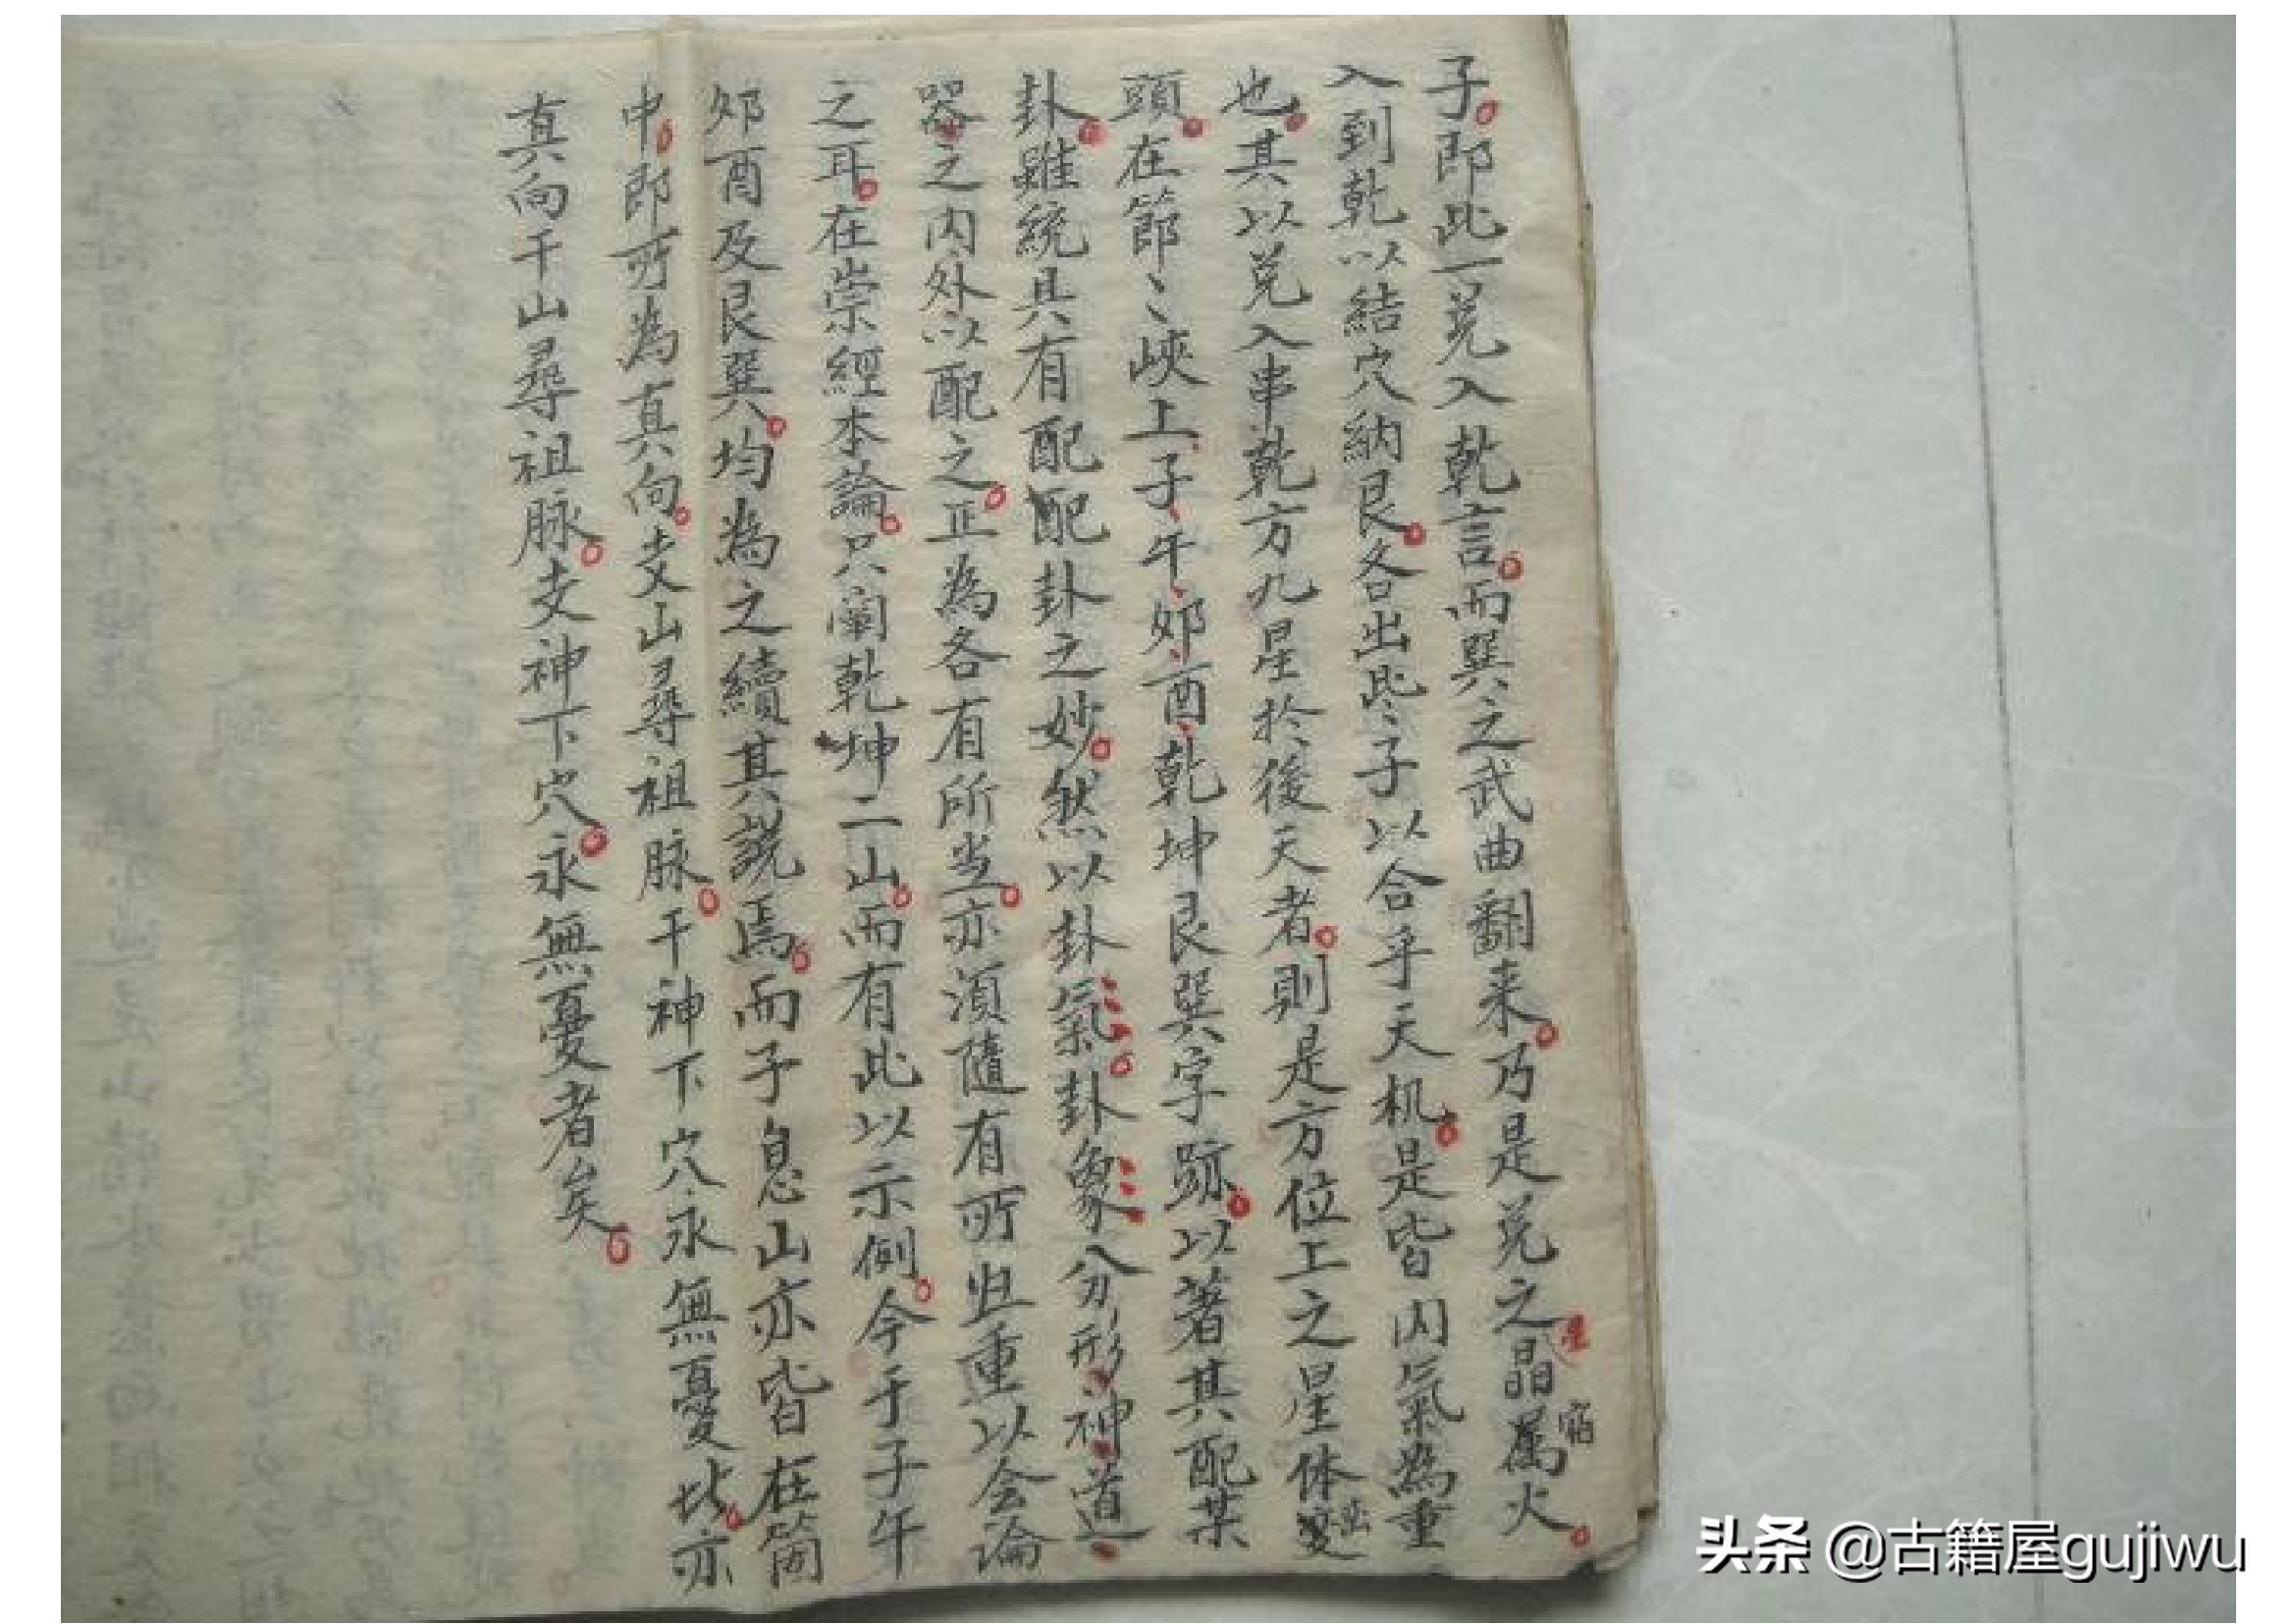 子即此一兑入乾言而巽之武曲翻来乃是兑之晶星宿属火
入到乾以結穴納艮各出此子以合乎天机是皆内氣為重
也其以兑入串乾方九星於後天者則是方位工之星体变
頭在節〻峽上子午郊酉乾坤艮巽字跡以著其配某
卦雖統具有配配卦之妙然以卦氣卦象分形神道
器之内外以配之正為各有所当亦須隨有所归重以会論
之耳在崇經本論只阐乾坤二山而有此以示例今于子午
郊酉及艮巽均為之續其說焉而子息山亦皆在箇
中即所為真向支山尋祖脉干神下穴永無憂此亦
真向干山尋祖脉支神下穴永無憂者矣
头条 @古籍屋gujiwu